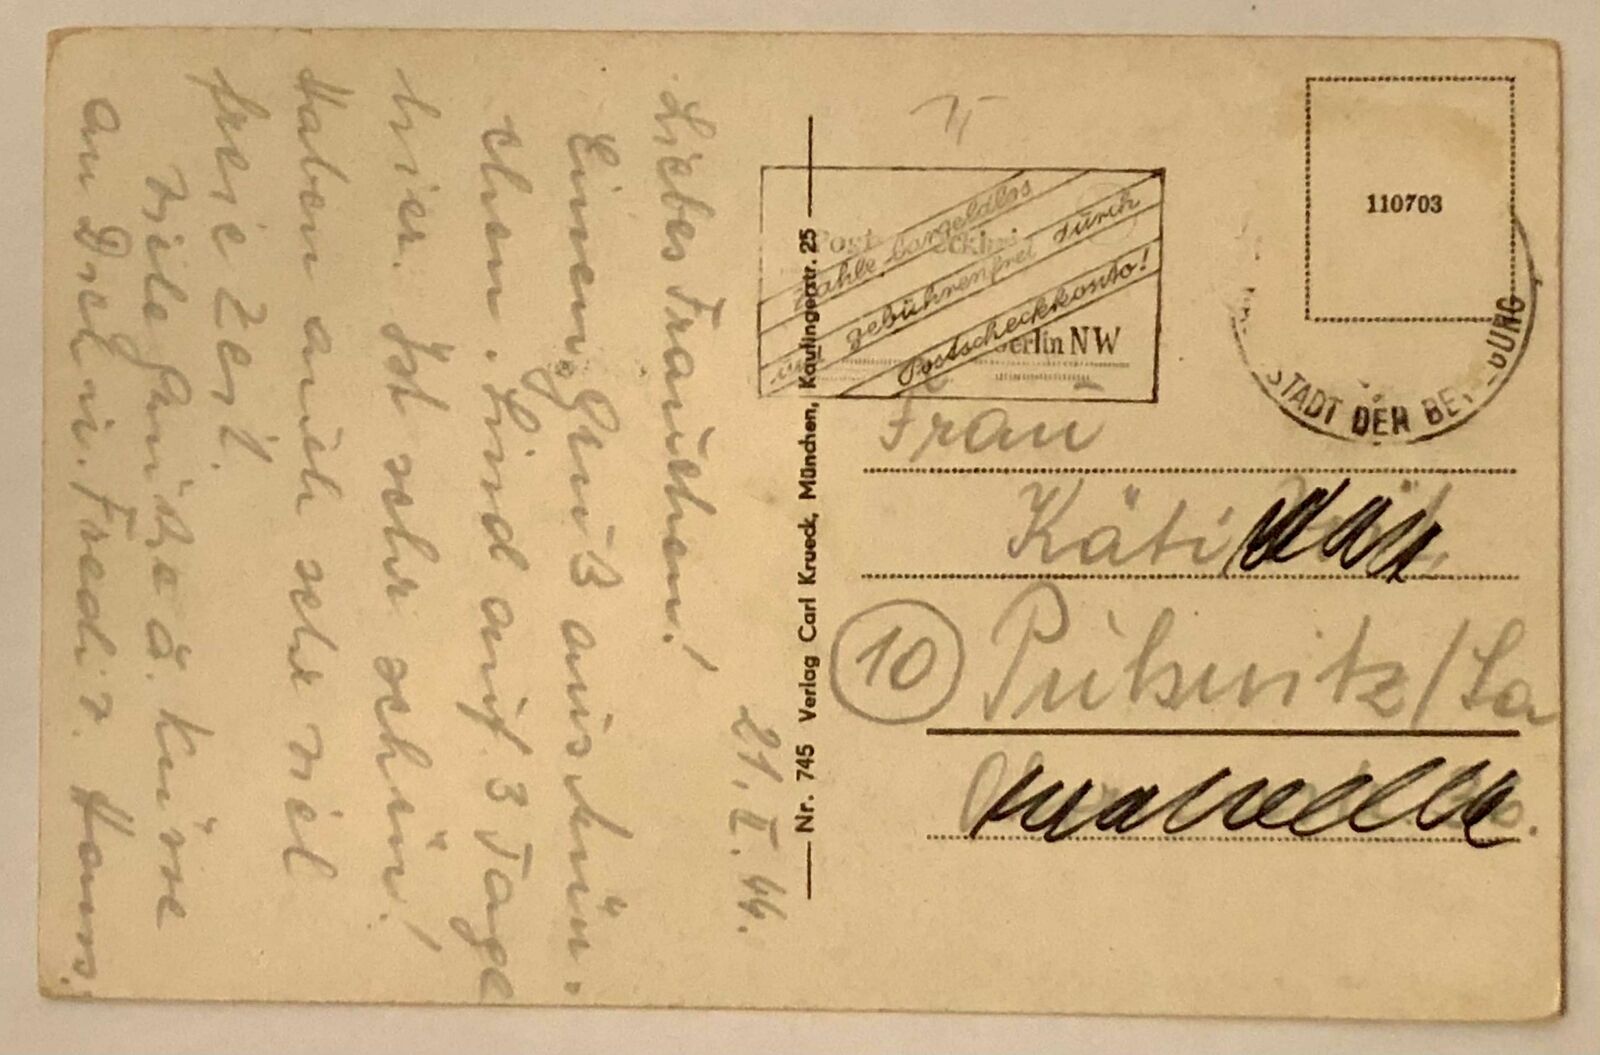 Liebes Frauchen!
Einen Gruß aus Mün-
chen. Sind auf 3 Tage
hier. Ist sehr schön!
Haben auch sehr viel
freie Zeit.
Viele Grüße u. Küsse
an Dich u. Fredi v. Hans.
21. II. 44.
Nr. 745 Verlag Carl Krueck, München, Kaufingerstr. 25
Zahle bargeldlos
und gebührenfrei durch
Postscheckkonto!
Post
Berlin NW
110703
STADT DER BEWEGUNG
Frau
Käti
10 Pulsnitz/Sa